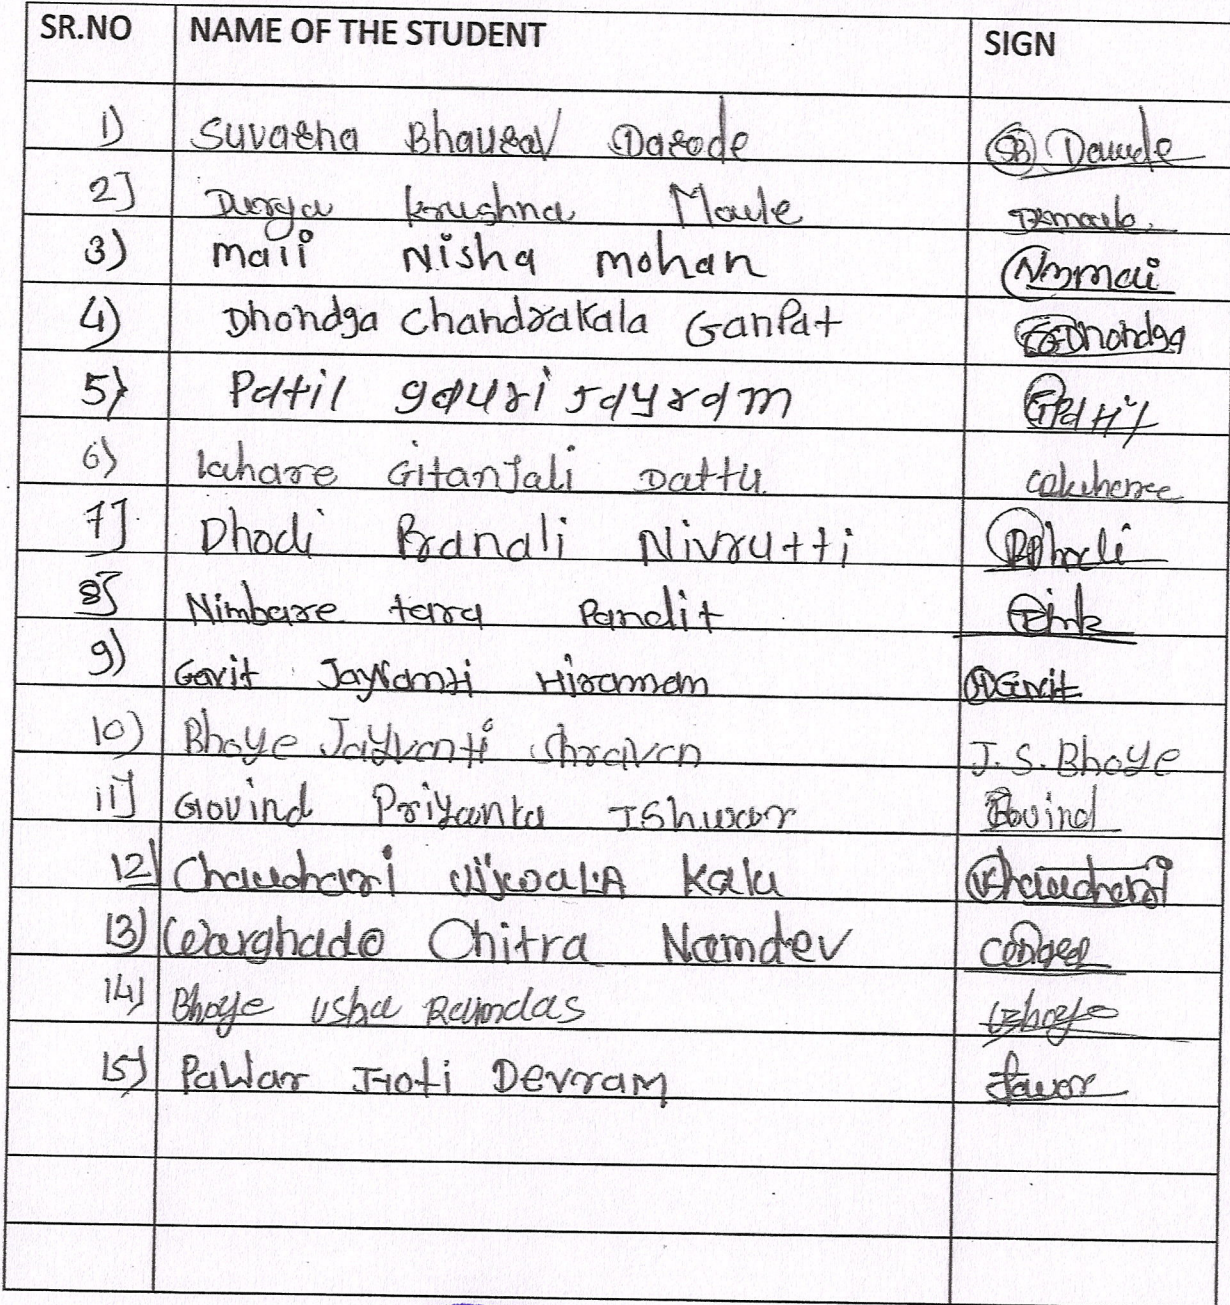 SR.NO NAME OF THE STUDENT SIGN
1) Suvarna Bhausal Darode
2] Durga Krushna Maule
3) Maii Nisha Mohan
4) Dhondga Chandrakala Ganpat Dhondga
5) Patil gauri Jayram Patil
6) Lahare Gitanjali Dattu
7] Dhodi Pranali Nivrutti Dhodi
8] Nimbare tara Pandit
9) Gavit Jayvanti Hiraman Gavit
10) Bhoye Jayvanti Shravan J.S.Bhoye
11] Govind Priyanka Ishwar Govind
12] Chaudhari Kalu Chaudhari
13) Warghade Chitra Namdev
14) Bhoye Usha Ramdas Bhoye
15) Pawar Jioti Devram